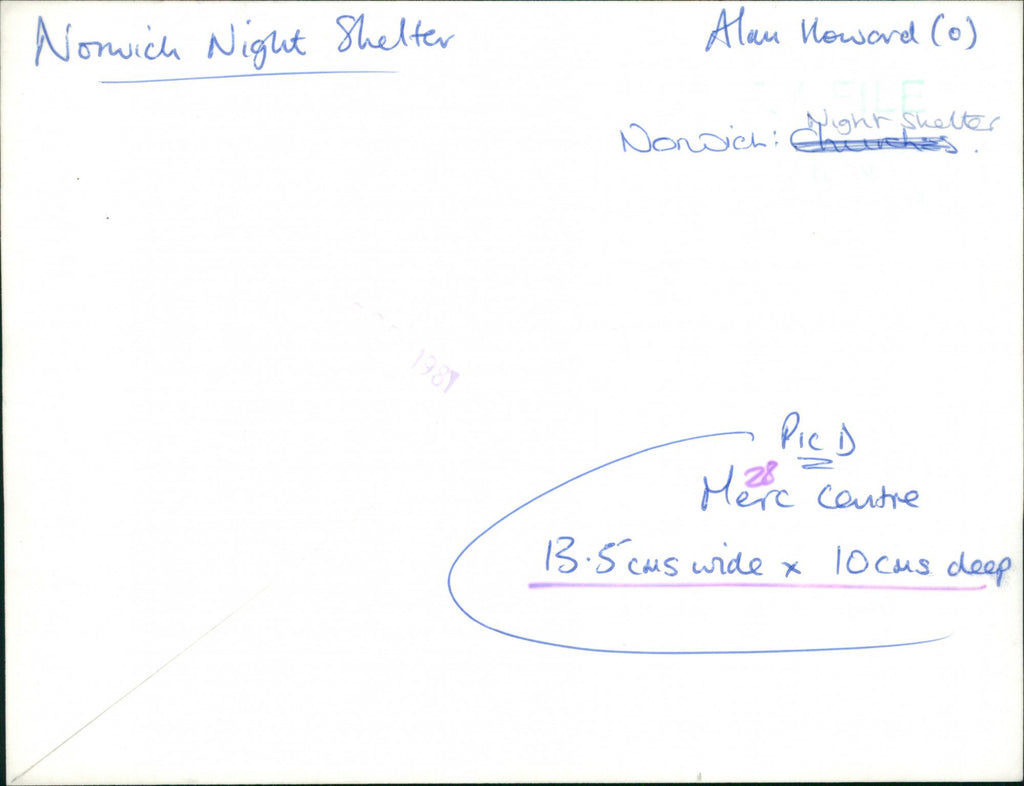 Norwich Night Shelter
Alan Howard (0)
FILE
Night Shelter
Norwich: Churches.
1987
Pic D
28
Merc Centre
13.5 cms wide x 10 cms deep